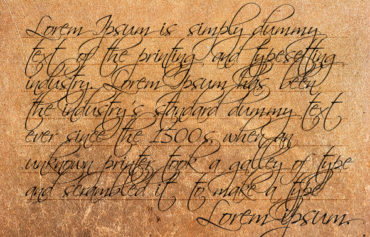 Lorem Ipsum is simply dummy
text of the printing and typesetting
industry. Lorem Ipsum has been
the industry's standard dummy text
ever since the 1500s, when an
unknown printer took a galley of type
and scrambled it to make a type
Lorem ipsum.